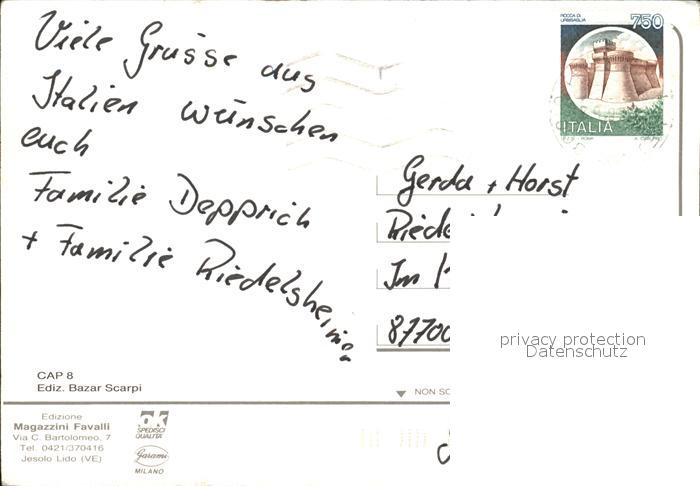 Viele Grüsse aus
Italien wünschen
euch
Familie Depprich
+ Familie Riedelsheimer
ROCCA DI
URBISAGLIA
750
ITALIA
Gerda + Horst
Im
87700
privacy protection
Datenschutz
CAP 8
Ediz. Bazar Scarpi
NON SC
Edizione
Magazzini Favalli
Via C. Bartolomeo, 7
Tel. 0421/370416
Jesolo Lido (VE)
ok
SPEDISCI
QUALITÀ
Garami
MILANO